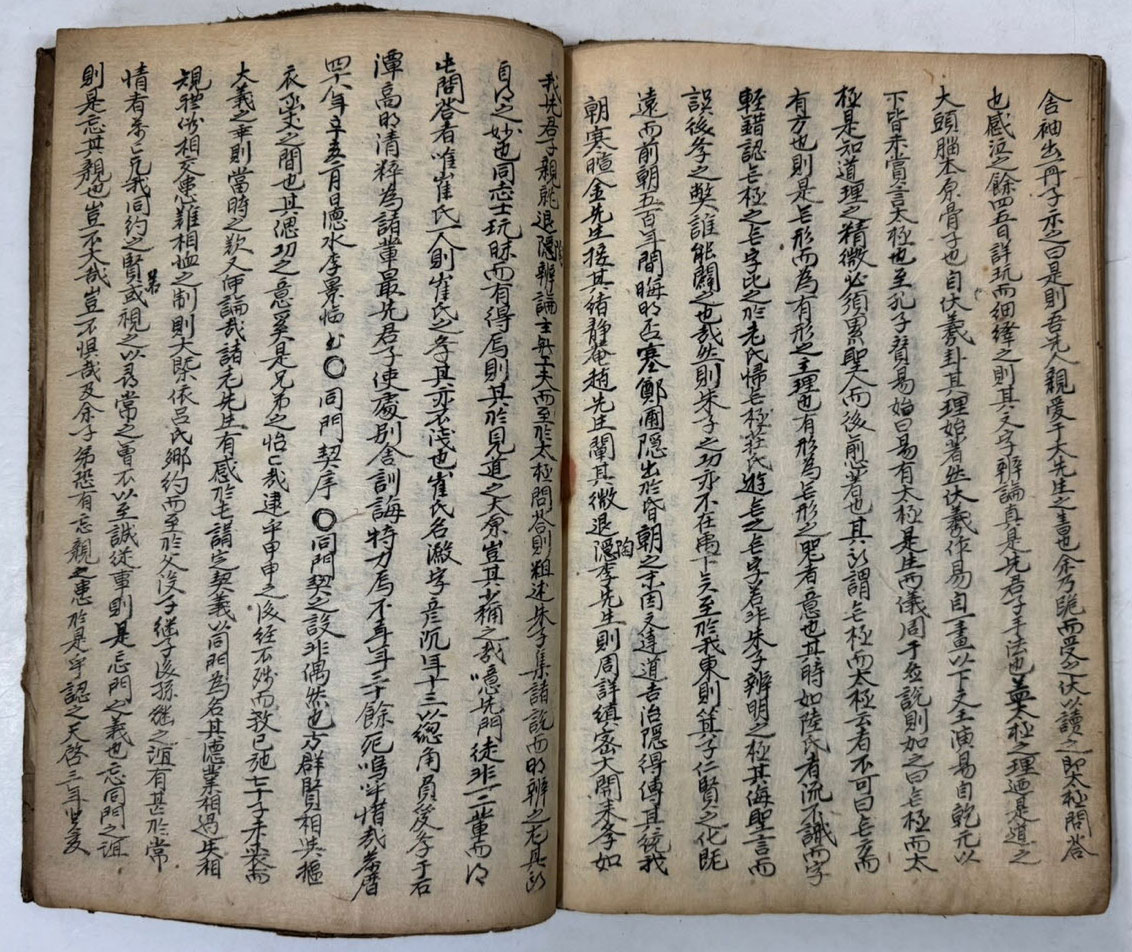 舍袖出一丹子示之曰是則吾先人親愛于大先生之書也余乃跪而受之伏以讀之卽太極問答
也感泣之餘四五日詳玩而細繹之則其文字辨論真是先君子手法也盖太極之理迺是道之
大頭腦本原骨子也自伏羲卦其理始著然伏羲作易自一畫以下文王演易自乾元以
下皆未嘗言太極也至孔子贊易始曰易有太極是生兩儀周子益說則加之曰無極而太
極是知道理之精微必須累聖人而後愈著也其所謂無極而太極云者不可曰無爲而
有方也則是無形而爲有形之主理也有形爲無形之器者意也其時如陸氏者流不識而字
輕錯認無極之無字比之於老氏歸無極莊氏遊無之無字若非朱子辨明之極其侮聖言而
誤後學之弊誰能闢之也哉然則朱子之功亦不在禹下矣至於我東則箕子仁賢之化旣
遠而前朝五百年間晦明否塞鄭圃隱出於昏朝之末因文達道吉冶隱得傳其統我
朝寒暄金先生接其緖靜菴趙先生闡其微退陶隱李先生則周詳縝密大開來學如
我先君子親就退陶隱辨論主無工夫而至於太極問答則粗述朱子集諸說而明辨之尤其所
自得之妙也同志士玩味而有得焉則其於見道之大原豈其少補之哉噫先門徒非一二輩而得
此問答者唯崔氏一人則崔氏之學其亦不淺也崔氏名澂字彥沉年十三以總角員笈學于石
潭高明淸粹爲諸輩最先君子使處別舍訓誨特力焉不幸年二十餘死嗚呼惜哉萬曆
四十八年辛亥二月日德水李景恬書◯同門契序◯同門契之設非偶然也方群賢相與摳
衣函丈之間也其偲切之意奚是兄弟之怡已哉建乎甲申之後經不幾而教已弛七十子未喪而
大義之乖則當時之歎又何論哉諸老先生有感於是講定契義以同門爲名其德業相過失相
規禮俗相交患難相恤之制則大槩依呂氏鄕約而至於父沒子繼子沒孫繼之誼有甚於常
情者第凡我同約之賢或視之以尋常之曹不以至誠從事則是忘同門之義也忘同門之誼
則是忘其親也豈不大哉豈不惧哉及余子弟恐有忘親之患於是乎認之天啓三年癸亥